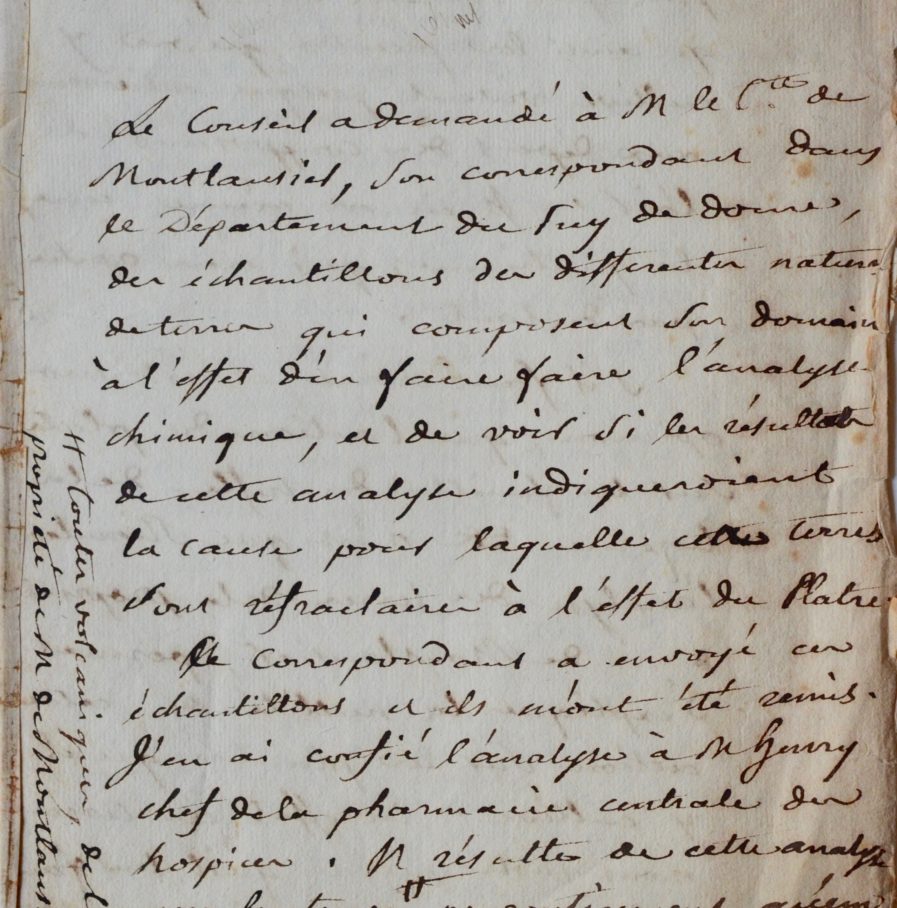 Le Conseil a demandé à M le Cte de
Montlausier, son correspondant dans
le Département du Puy de dome,
des échantillons des differentes natures
de terres qui composent son domain
à l'effet d'en faire faire l'analyse
chimique, et de voir si les résultats
de cette analyse indiqueroient
la cause pour laquelle cette terres
sont réfractaires à l'effet du Platre.
Le Correspondant a envoyé ces
échantillons et ils m'ont été remis.
J'en ai confié l'analyse à M henry
chef de la pharmacie centrale des
hospices. Il résulte de cette analyse
toutes volcaniques, de l
propriété de M de Montlaus